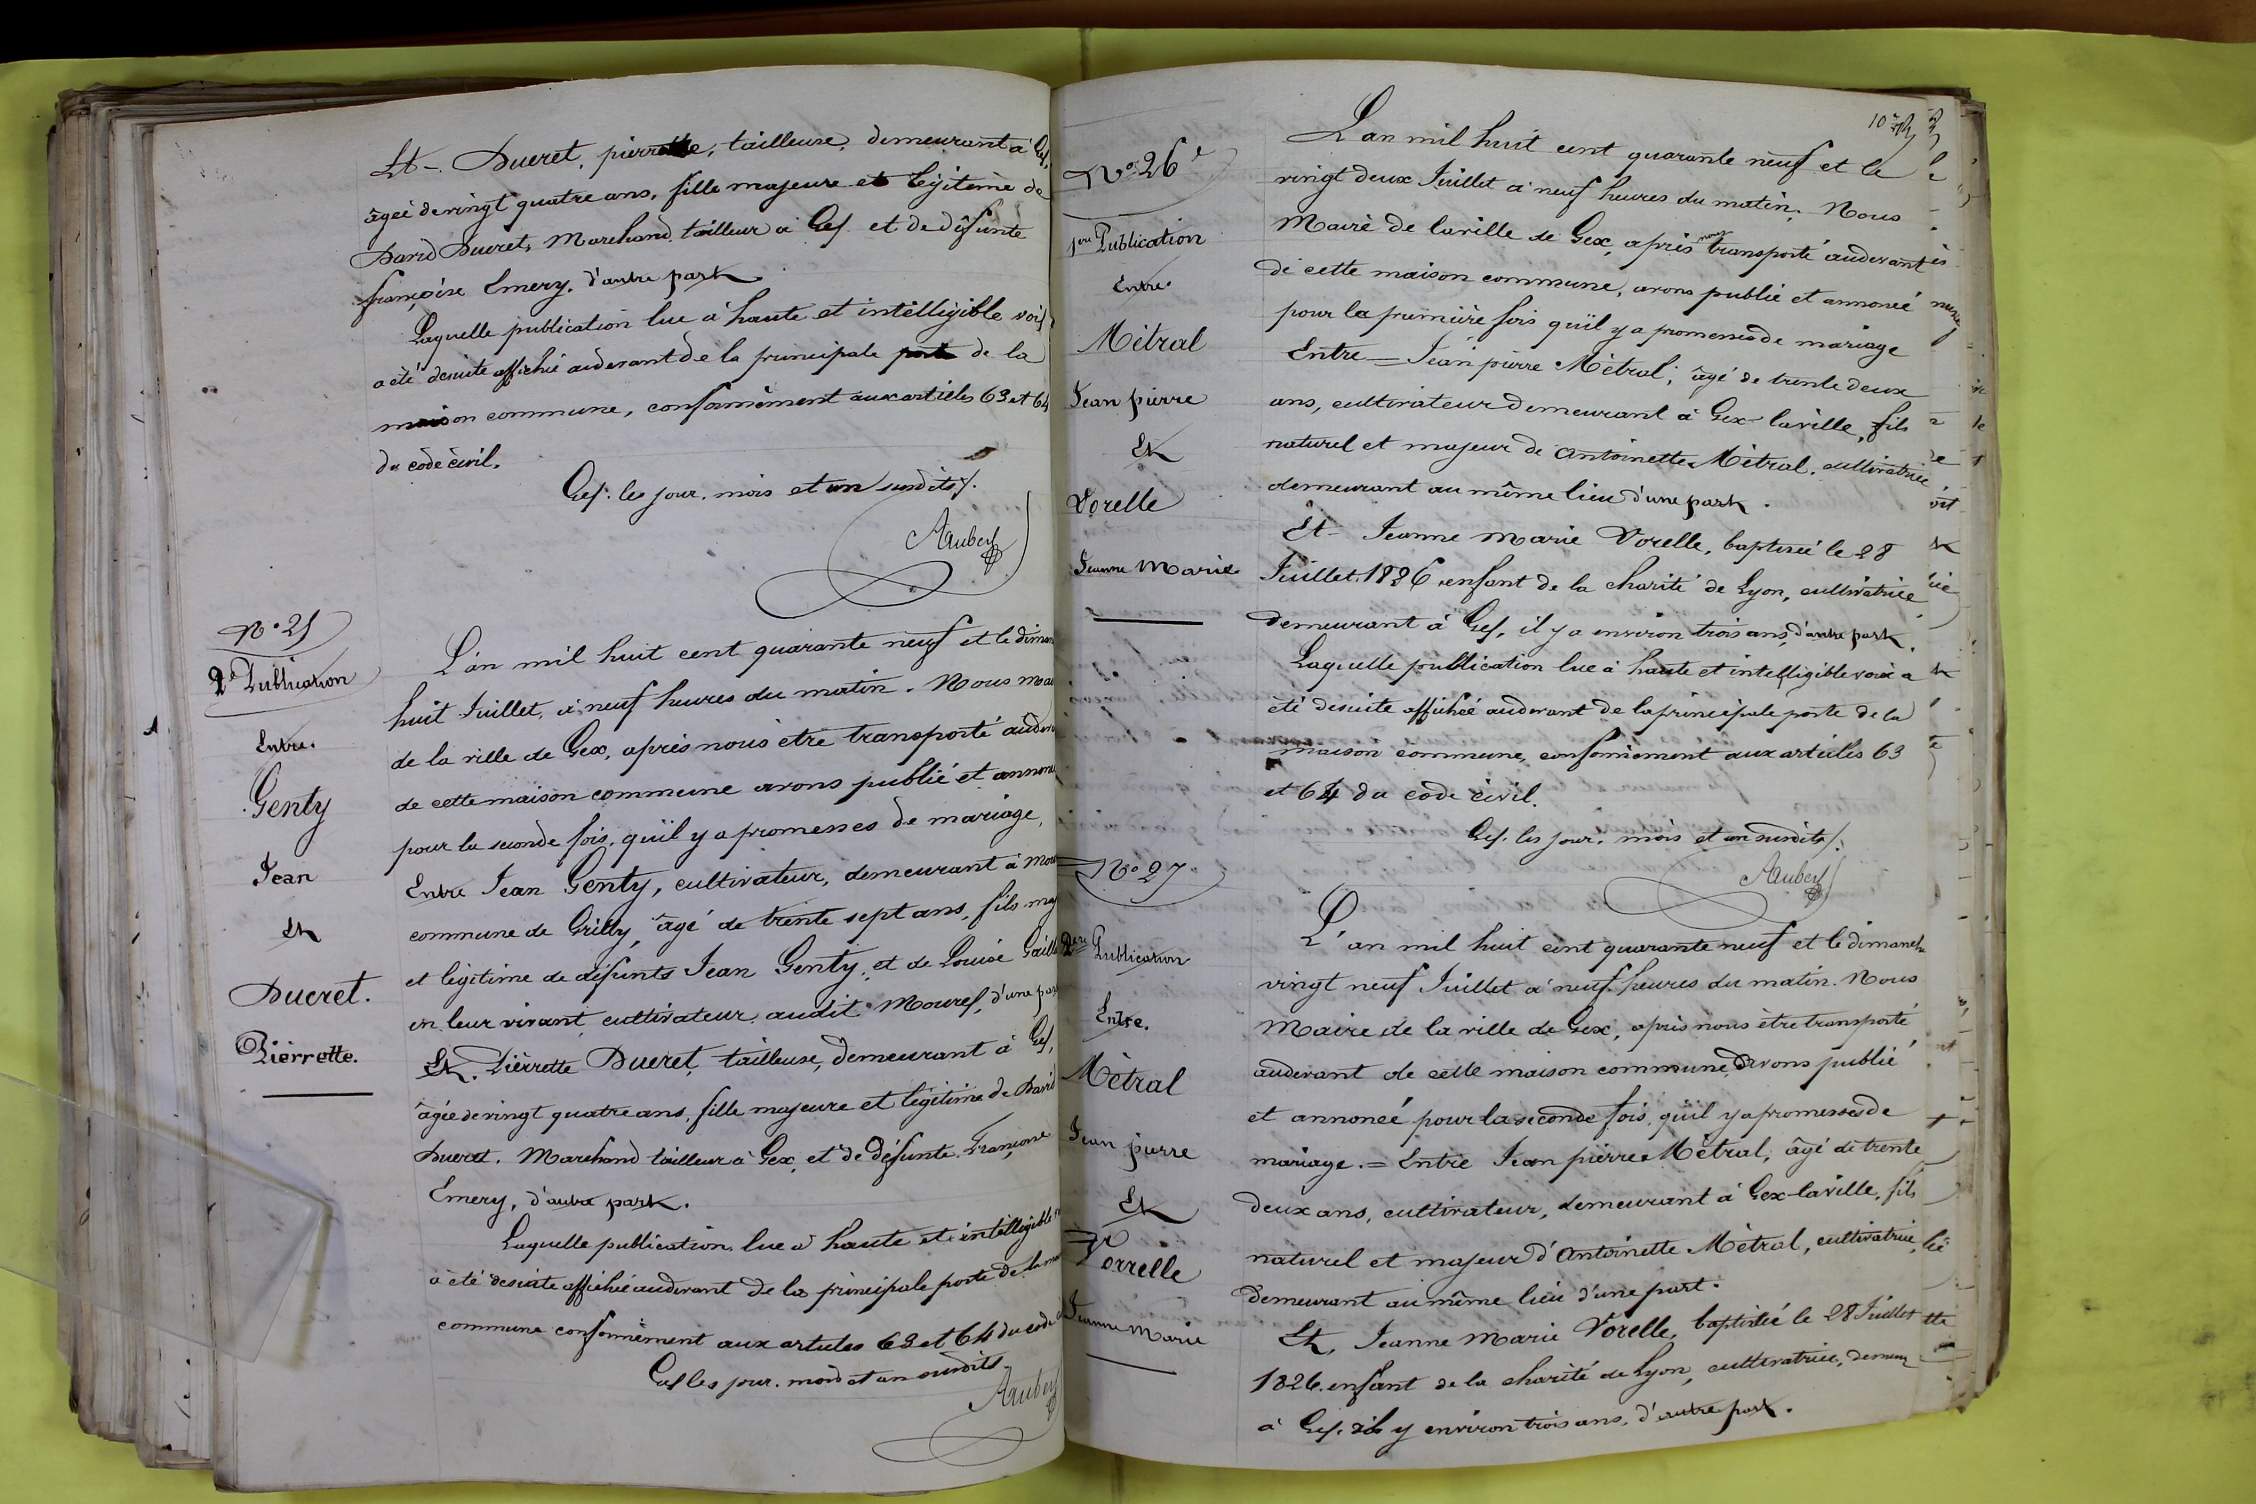 Et - Ducret, pierrette, tailleuse, demeurant à Gex,
âgée de vingt quatre ans, fille majeure et légitime de
David Ducret, Marchand tailleur à Gex et de défunte
françoise Emery, d'autre part
Laquelle publication lue à haute et intélligible voix
a été desuite affichée audevant de la principale porte de la
maison commune, conformément aux articles 63 et 64
du code civil.
Gex. les jour, mois et an susdits.
Aubert
N° 25
2e Publication
Entre.
Genty
Jean
Et
Ducret.
Pierrette.
L'an mil huit cent quarante neuf et le
huit Juillet, à neuf heures du matin. Nous
de la ville de Gex, après nous être transporté
de cette maison commune avons publié et
pour la seconde fois, qu'il y a promesses de mariage,
Entre Jean Genty, cultivateur, demeurant à
commune de Grilly, âgé de trente sept ans, fils
et légitime de défunts Jean Genty, et de Louise
en leur vivant cultivateur audit Mourex, d'une
Et. Pierrette Ducret, tailleuse, demeurant à Gex,
âgée de vingt quatre ans, fille majeure et légitime de David
Ducret. Marchand tailleur à Gex, et de défunte Françoise
Emery, d'autre part.
Laquelle publication lue à haute et intélligible
a été desuite affichée audevant de la principale porte de la
commune conformément aux articles 63 et 64 du code
Gex les jour. mois et an susdits
Aubert
N° 26
1ere Publication
Entre.
Métral
Jean pierre
Et
Vorelle
Jeanne Marie
L'an mil huit cent quarante neuf et le
vingt deux Juillet à neuf heures du matin. Nous
Maire de la ville de Gex, après nous transporté audevant
de cette maison commune, avons publié et annoncé
pour la première fois qu'il y a promesses de mariage
Entre — Jean pierre Métral, âgé de trente deux
ans, cultivateur demeurant à Gex-la ville, fils
naturel et majeur de Antoinette Métral, cultivatrice
demeurant au même lieu d'une part.
Et - Jeanne Marie Vorelle, baptisée le 28
Juillet 1826 enfant de la charité de Lyon, cultivatrice
demeurant à Gex, il y a environ trois ans, d'autre part.
Laquelle publication lue à haute et intelligible voix a
été desuite affichée audevant de la principale porte de la
maison commune, conformément aux articles 63
et 64 du code civil.
Gex. les jour, mois et an susdits.
Aubert
N° 27
2ere Publication
Entre.
Métral
Jean pierre
Et
Vorrelle
Jeanne Marie
L'an mil huit cent quarante neuf et le dimanche
vingt neuf Juillet à neuf heures du matin. Nous
Maire de la ville de Gex, après nous être transporté
audevant de cette maison commune, avons publié
et annoncé pour la seconde fois, qu'il y a promesses de
mariage. = Entre Jean pierre Métral, âgé de trente
deux ans, cultivateur, demeurant à Gex-la ville, fils
naturel et majeur d'Antoinette Métral, cultivatrice,
demeurant au même lieu d'une part.
Et, Jeanne Marie Vorelle, baptisée le 28 Juillet
1826 enfant de la charité de Lyon, cultivatrice,
à Gex. il y environ trois ans, d'autre part.